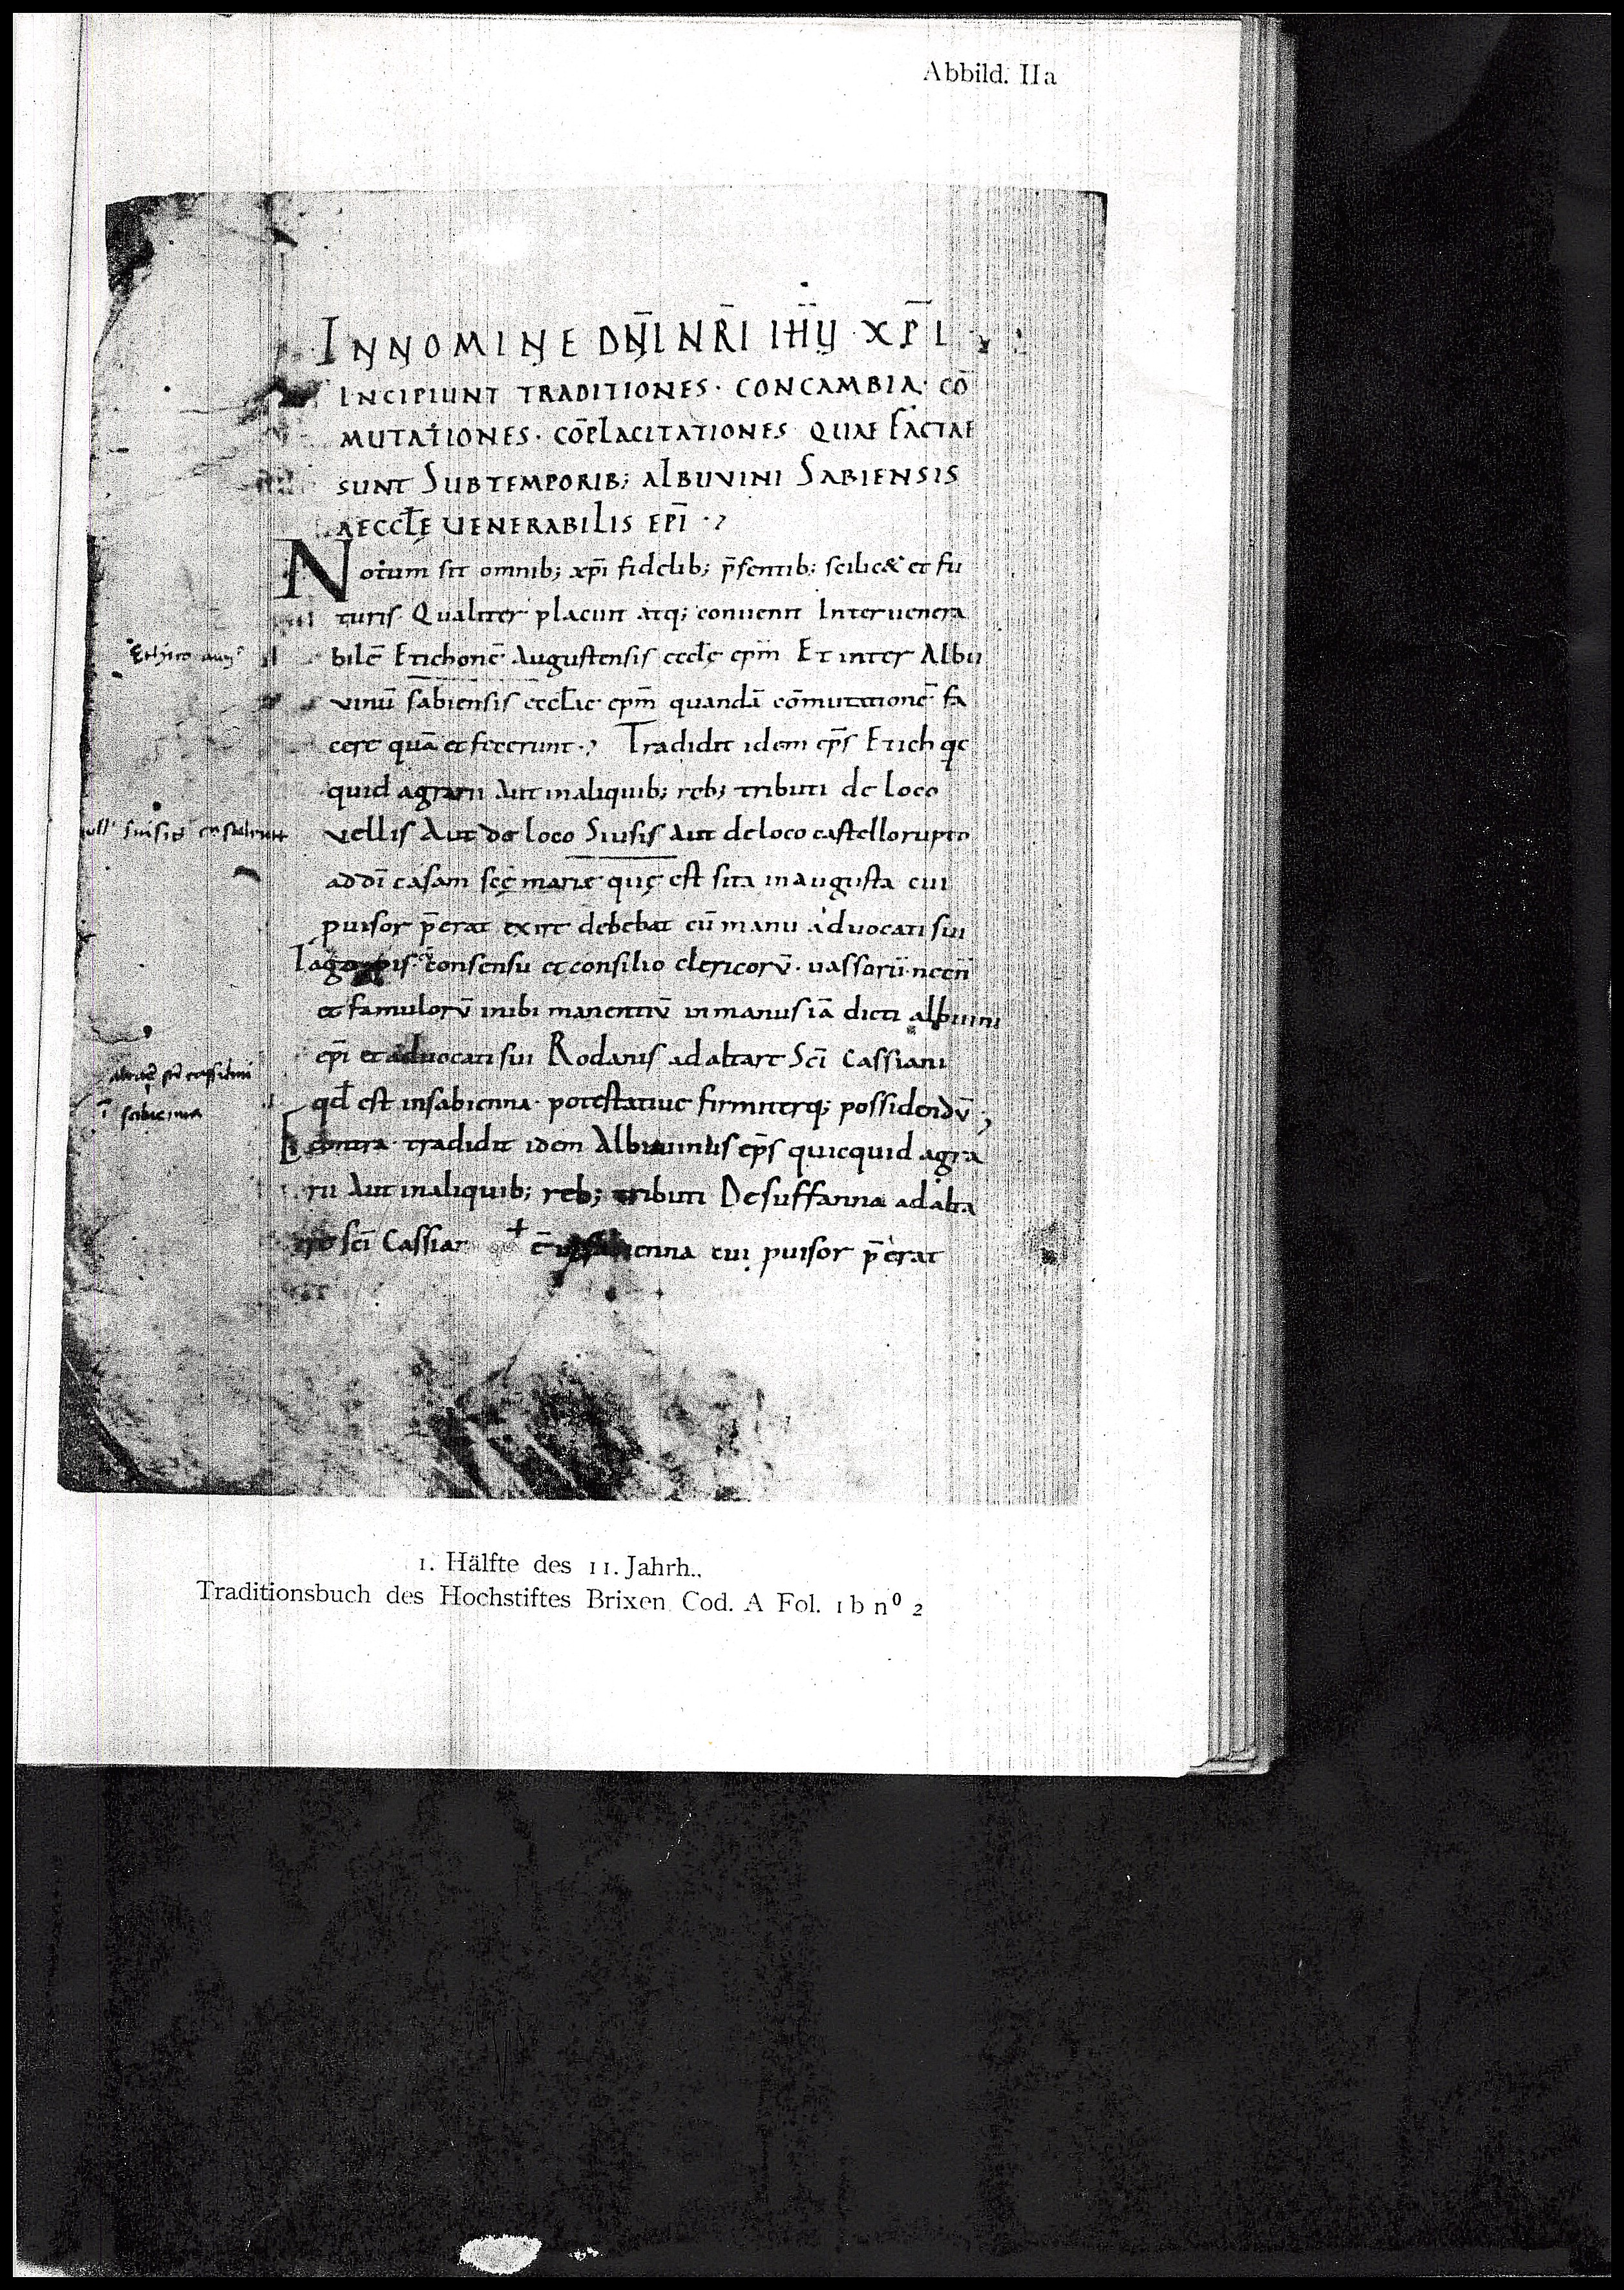 Abbild. IIa
INNOMINE DN̄I NR̄I IHŪ XP̄I
INCIPIUNT TRADITIONES · CONCAMBIA · CŌ
MUTATIONES · CŌPLACITATIONES QUAE FACTAE
SUNT SUBTEMPORIB; ALBUVINI SABIENSIS
AECCLĘ UENERABILIS EPĪ ·
Notum sit omnib; xpī fidelib; p̄sentib; scilic& et fu
turis Qualiter placuit atq; conuenit Inter uenera
Ethico aug
bilē Etichonē Augustensis eccłę epm̄ Et inter Albu
vinū sabiensis eccłae epm̄ quandā cōmutationē fa
cere quā et fecerunt · Tradidit idem ep̄s Etich qc
quid agrarii Aut inaliquib; reb; tributi de loco
siusis
vellis Aut de loco Siusis aut deloco castellorupto
ad dī casam scę̄ marię quę est sita in augusta cui
puisor p̄erat exire debebat cū manu aduocati sui
consensu et consilio clericorū · uassorū · necn̄
et famulorū inibi manentiū in manus iā dicti albuuini
epī et aduocati sui Rodanis ad altare Scī Cassiani
altare scī cassiani
ī sabienna
qđ est insabienna · potestatiue firmiterq; possidendū;
E contra tradidit idem Albuuinus ep̄s quicquid agra
rii Aut inaliquib; reb; tributi De suffanna ad alta
re scī Cassian + ē insabienna cui puisor p̄erat
1. Hälfte des 11. Jahrh.,
Traditionsbuch des Hochstiftes Brixen Cod. A Fol. 1 b nº 2